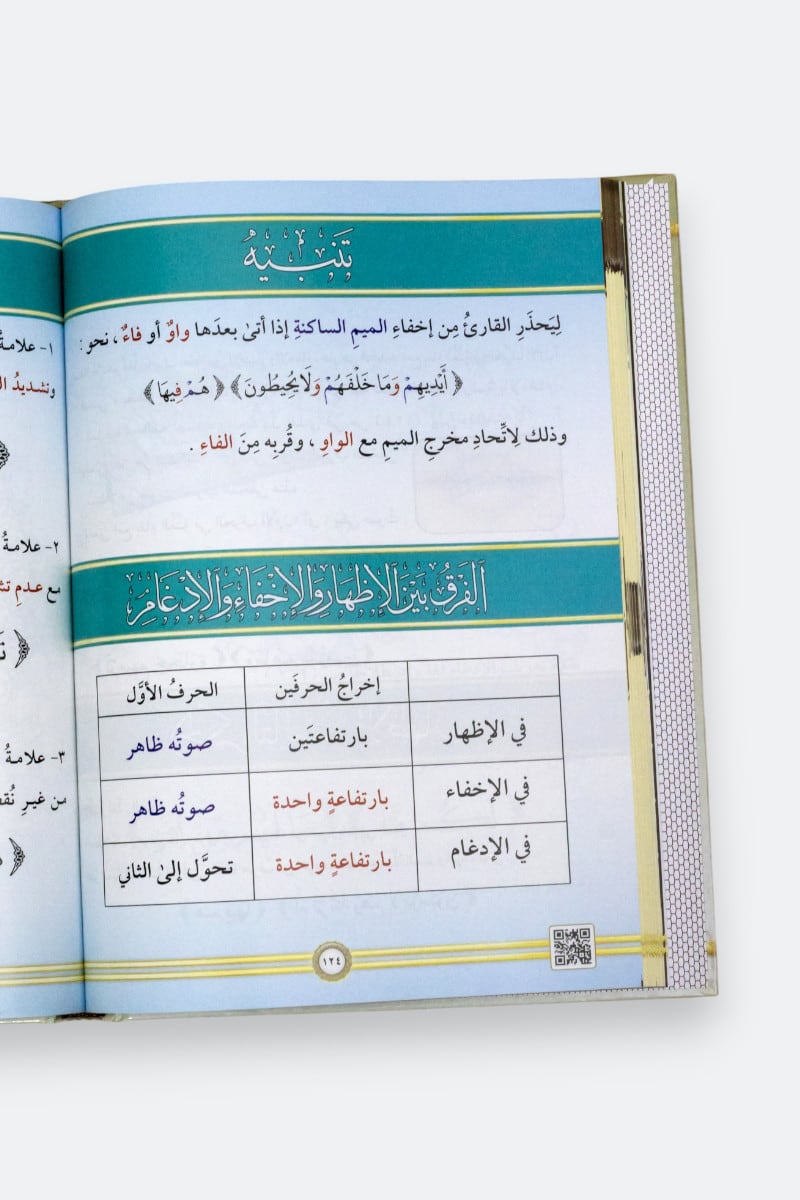 تَنبِيه
لِيَحذَرِ القارئُ مِن إخفاءِ الميمِ الساكنةِ إذا أتىٰ بعدَها واوٌ أو فاءٌ، نحو:
﴿أَيْدِيهِمْ وَمَا خَلْفَهُمْ وَلَا يُحِيطُونَ﴾ ﴿هُمْ فِيهَا﴾
وذلك لِاتِّحادِ مخرجِ الميمِ مع الواوِ، وقُربِه مِنَ الفاءِ.
الفَرقُ بَيْنَ الإِظْهَارِ وَالإِخْفَاءِ وَالإِدْغَامِ
إخراجُ الحرفَين الحرفُ الأوَّل
في الإظهار بارتفاعتَين صوتُه ظاهر
في الإخفاء بارتفاعةٍ واحدة صوتُه ظاهر
في الإدغام بارتفاعةٍ واحدة تحوَّل إلىٰ الثاني
١٢٤
١- علامةُ
وتشديدُ
٢- علامةُ
مع عدمِ
٣- علامةُ
من غيرِ